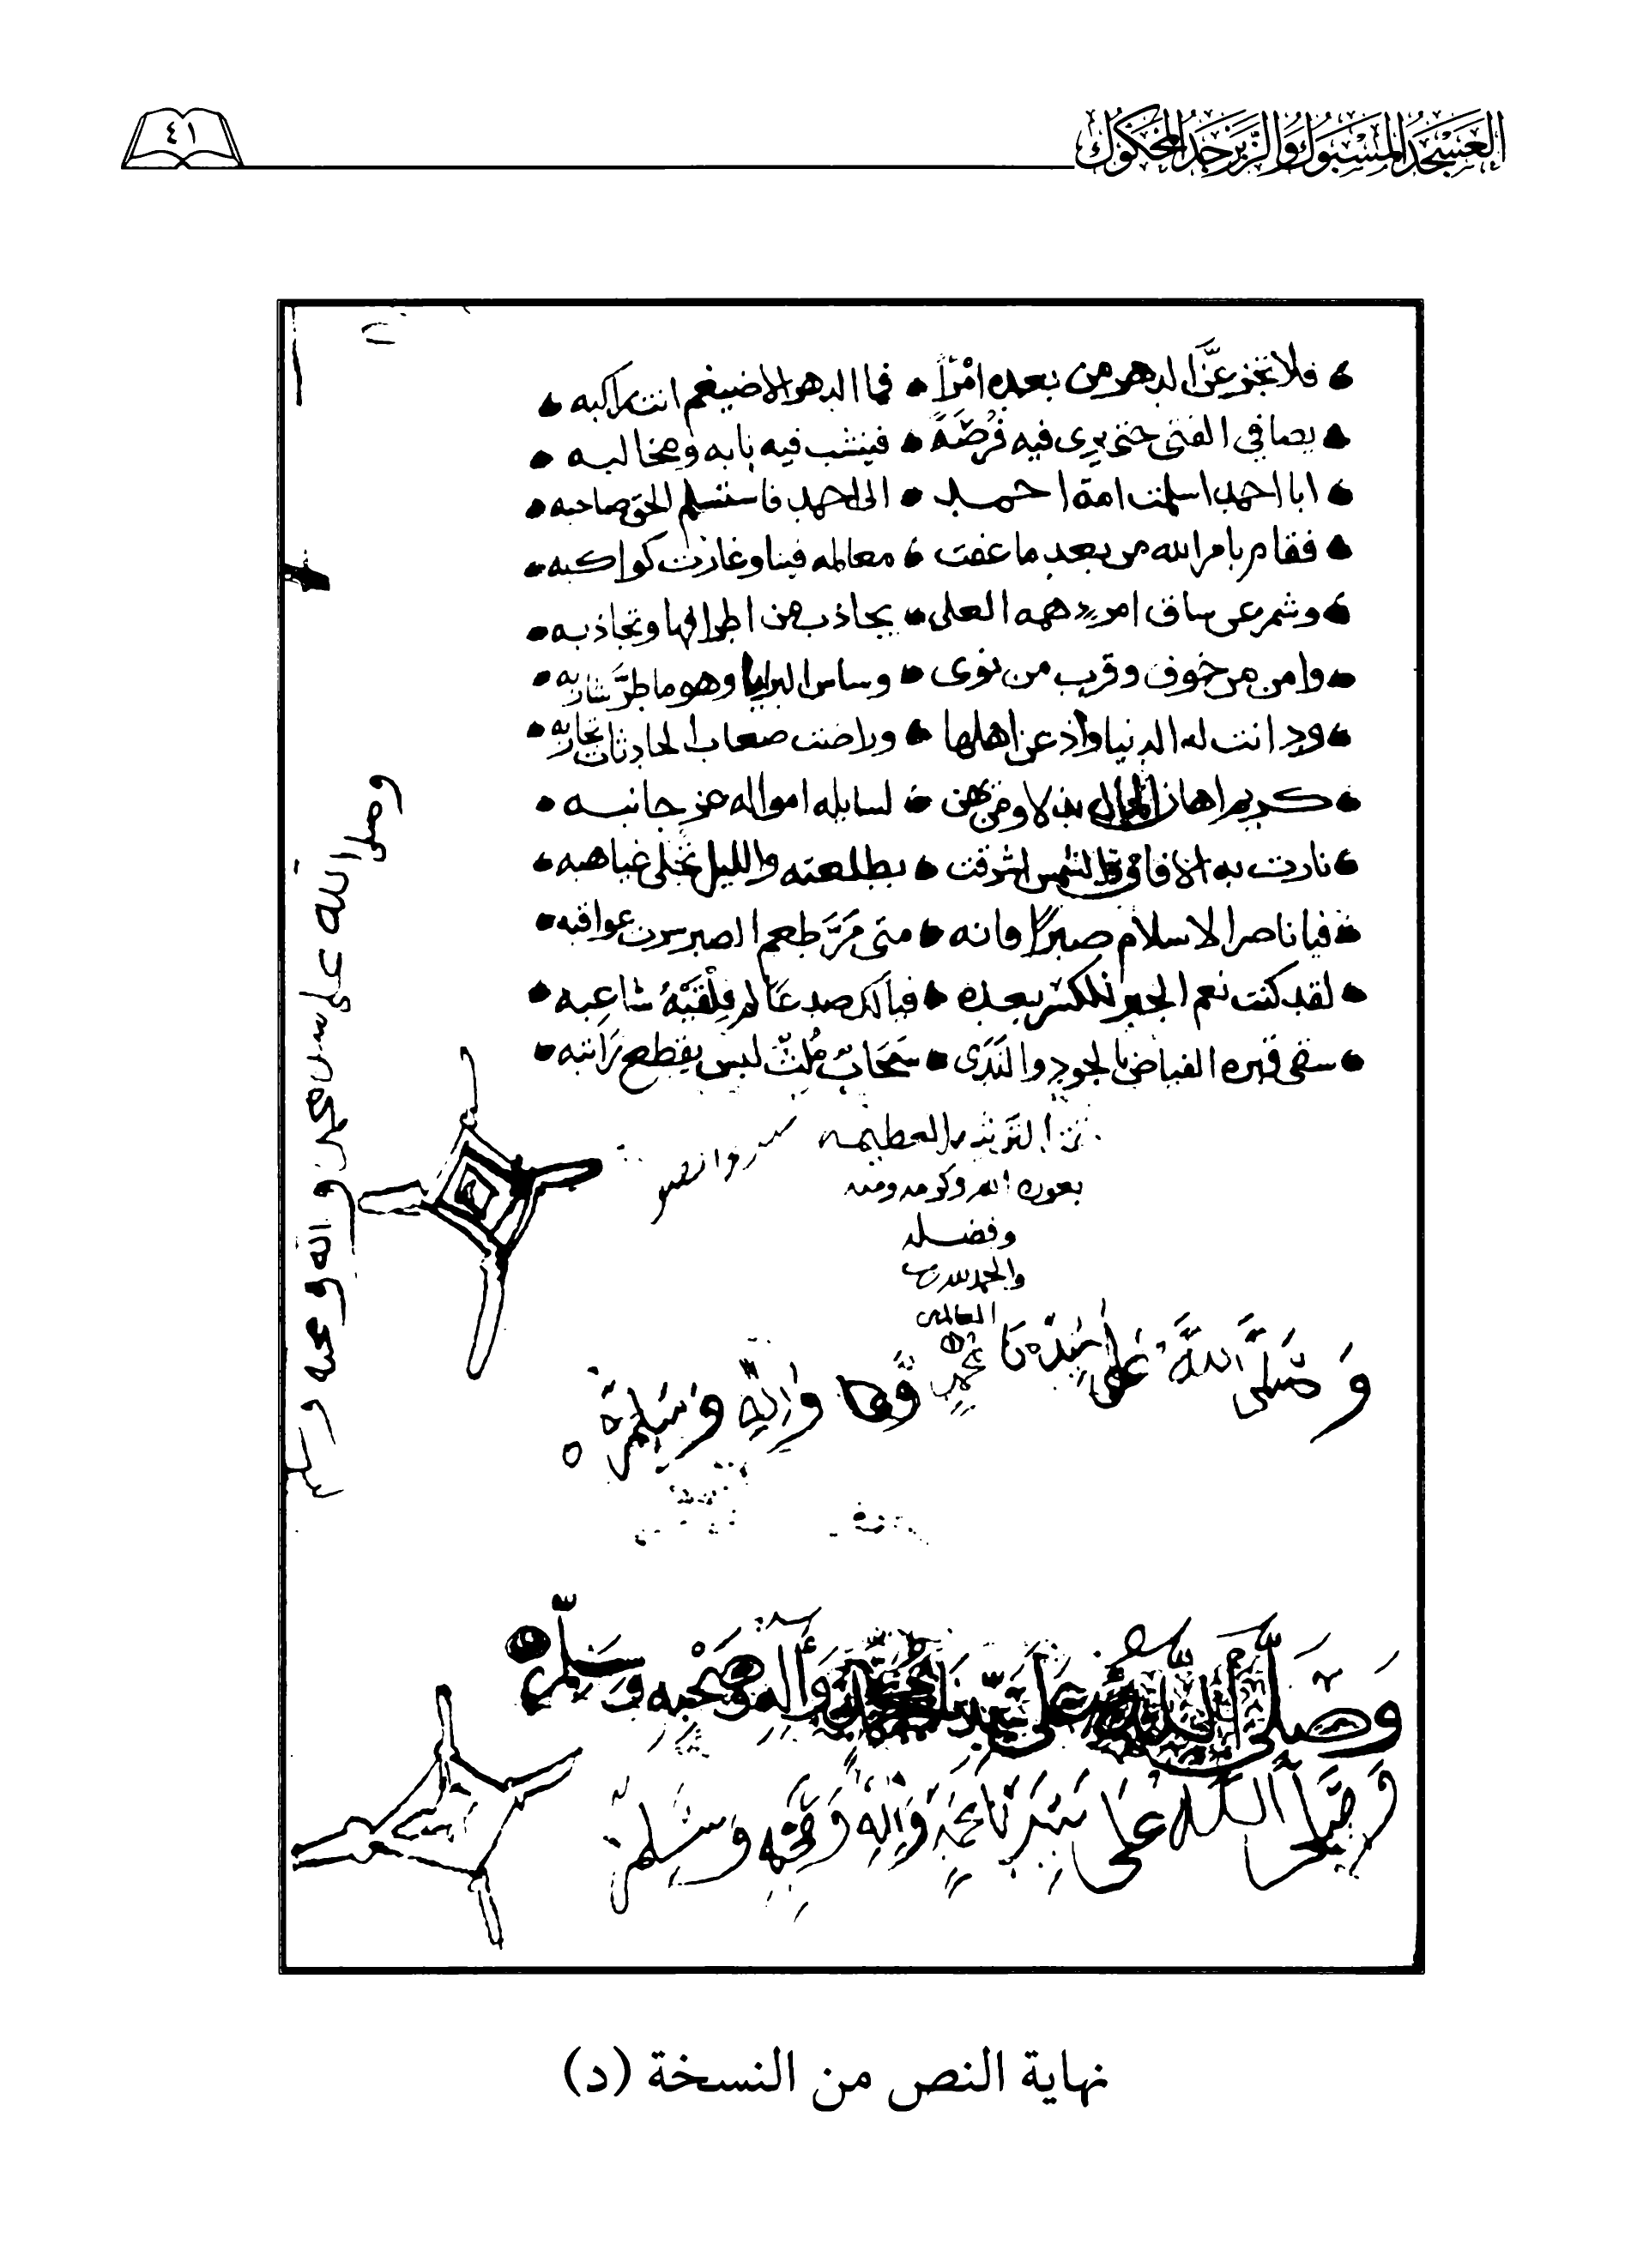 العسجد المسبوك والزبرجد المحكوك
٤١
فلا تجزعن الدهر من بعده امرا • فما الدهر الا ضيغم انت راكبه
يصافي الفتى حتى يرى فيه فُرْصَةً • فينشب فيه نابه ومخالبه
ابا احمد اسلمت امة احمد • الى احمد فاستسلم الحق صاحبه
فقام بامر الله من بعد ما عفت • معالمه فينا وغارت كواكبه
وشمر عن ساق امرء همه العلى • يجاذب من اطرافها وتجاذبه
وامن من خوف وقرب من نوى • وساس البرايا وهو ما طرَّ شاربه
ودانت له الدنيا واذعن اهلها • وراضت صعاب الحادثات تجاربه
كريم اهان المال • لسايله امواله عز جانبه
نارت به الافاق والشمس اشرقت • بطلعته والليل تجلى غياهبه
فيا ناصر الاسلام صبرًا فانه • متى مَرَّ طعم الصبر سرت عواقبه
لقد كنت نعم الجبر للكسر بعده • فيالك صدعا شاعبه
سقى قبره الفياض بالجود والنَّدَى • سَحَابٌ مُلِثّ ليس يقطع راتبه
وفضله
والحمد لله رب
العالمين
وَصَلَّى اللهُ عَلَى سيدنا محمد واله وسلم
وَصَلَّى اللهُ عَلَى سَيِّدِنَا مُحَمَّدٍ وَآلِهِ وَصَحْبِهِ وَسَلَّمَ
وصلى الله على سيدنا محمد واله وصحبه وسلم
وصلى الله على سيدنا محمد واله وصحبه وسلم
نهاية النص من النسخة (د)